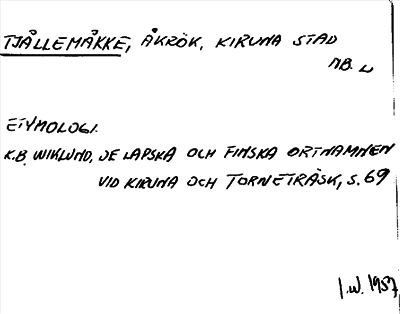 TJÅLLEMÅKKE, ÅKRÖK, KIRUNA STAD
NB. L
ETYMOLOGI.
K.B. WIKLUND, DE LAPSKA OCH FINSKA ORTNAMNEN
VID KIRUNA OCH TORNETRÄSK, S. 69
I.W. 1957